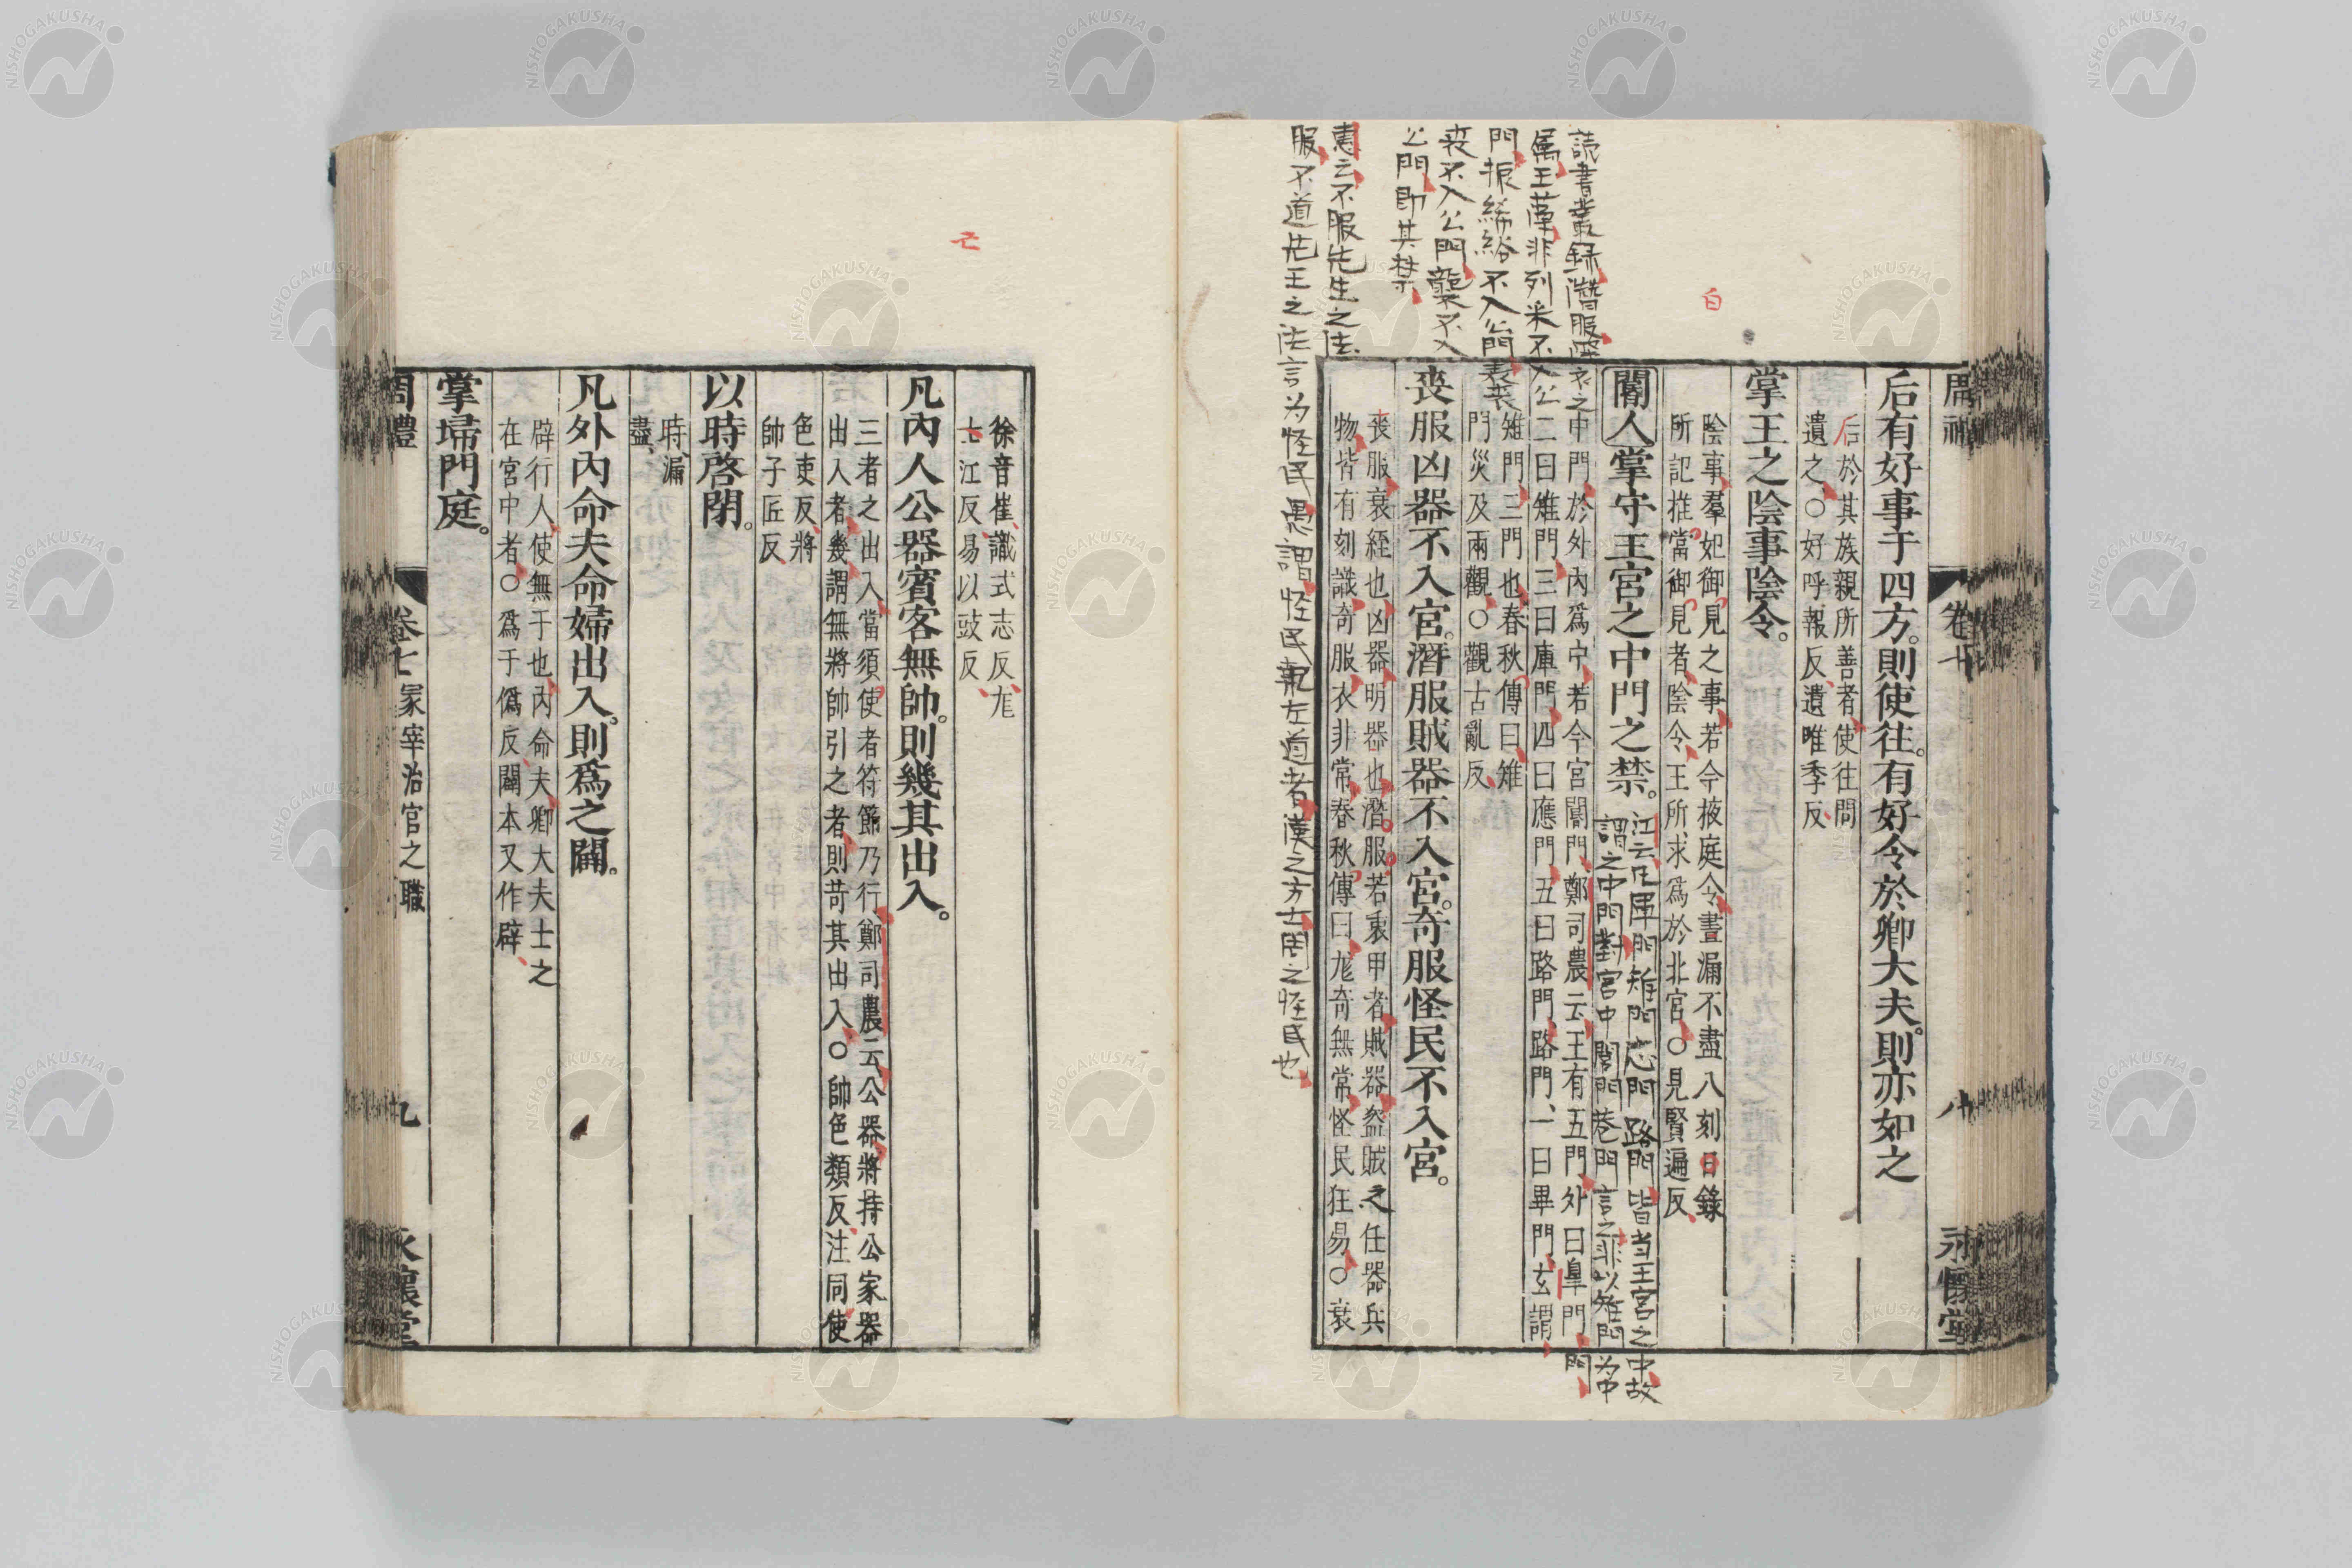 周禮
卷七
八
永懷堂
后有好事于四方。則使往。有好令於卿大夫。則亦如之
后於其族親所善者、使往問
遺之、○好呼報反、遺唯季反、
掌王之陰事陰令。
陰事、羣妃御見之事、若今掖庭令、晝漏不盡八刻、白錄
所記、推當御見者、陰令、王所求爲於北宮、○見賢遍反、
閽人掌守王宮之中門之禁。
江云、庫門雉門應門路門皆当王宮之中故
謂之中門、對宮中閽門巷門言之、非以雉門为中
門
中門、於外內爲中、若今宮闕門、鄭司農云、王有五門、外曰臯門、
二曰雉門、三曰庫門、四曰應門、五曰路門、路門、一曰畢門、玄謂、
雉門、三門也、春秋傳曰、雉
門災及兩觀、○觀古亂反、
喪服凶器不入宮。潛服賊器不入宮。奇服怪民不入宮。
喪服、衰絰也、凶器、明器也、潛服、若衷甲者、賊器、盜賊之任器、兵
物皆有刻識、奇服、衣非常、春秋傳曰、尨奇無常、怪民、狂易、○衰
読書叢録、潜服
属、王藻、非列采不入公
門、振絺綌不入公門、表裘
裘不入公門、襲裘不入
公門、即其禁、
惠云、不服先生之法
服、不道先王之法言为怪民、愚謂、怪民執左道者、漢之方士、周之怪民也、
白
徐音崔、識式志反、尨
亡江反、易以豉反、
凡內人公器賓客無帥。則幾其出入。
三者之出入、當須使者符節乃行、鄭司農云、公器、將持公家器
出入者、幾謂無將帥引之者、則苛其出入、○帥色類反、注同、使
色吏反、將
帥子匠反、
以時啓閉。
時漏
盡、
凡外內命夫命婦出入。則爲之闢。
辟行人、使無干也、內命夫、卿大夫士之
在宮中者、○爲于僞反、闢本又作辟、
掌埽門庭。
周禮
卷七冢宰治官之職
九
永懷堂
NISHOGAKUSHA